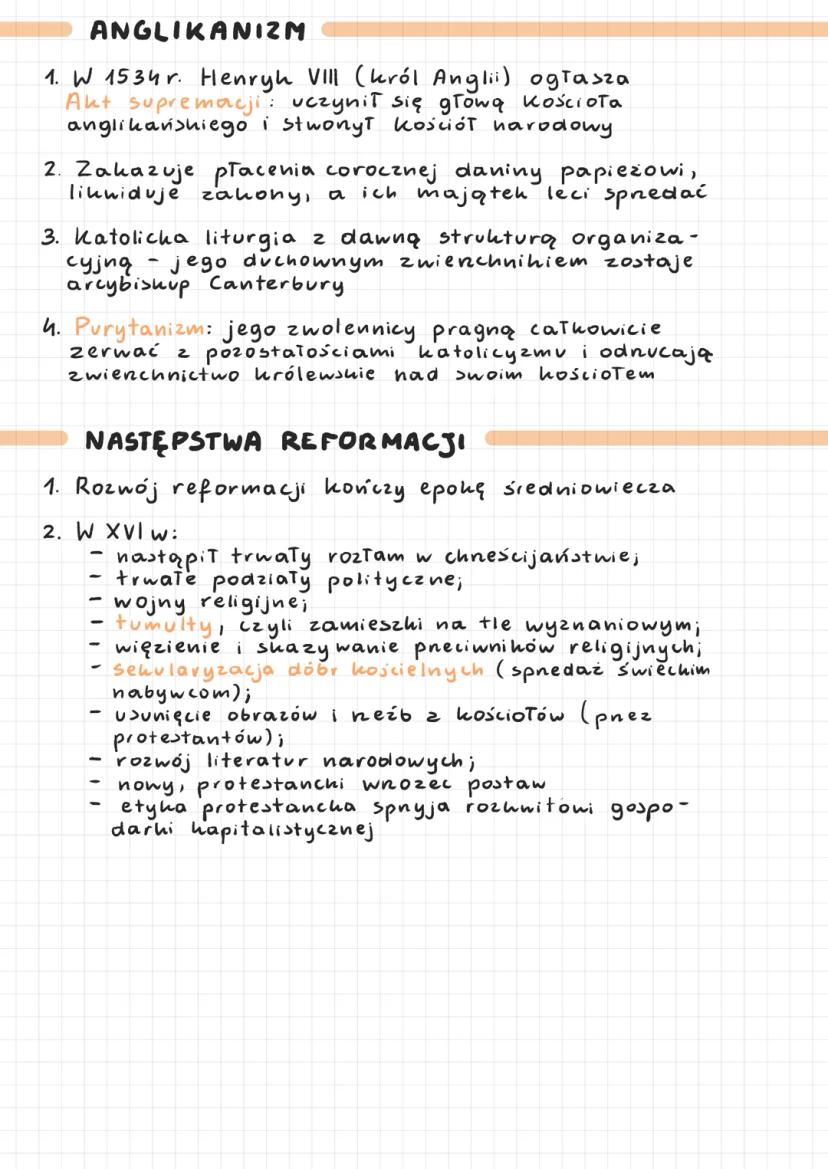 ANGLIKANIZM
1. W 1534 r. Henryk VIII (król Anglii) ogłasza
Akt supremacji: uczynił się głową Kościoła
anglikańskiego i stworzył kościół narodowy
2. Zakazuje płacenia corocznej daniny papieżowi,
likwiduje zakony, a ich majątek leci sprzedać
3. Katolicka liturgia z dawną strukturą organiza-
cyjną - jego duchownym zwierzchnikiem zostaje
arcybiskup Canterbury
4. Purytanizm: jego zwolennicy pragną całkowicie
zerwać z pozostałościami katolicyzmu i odrzucają
zwierzchnictwo królewskie nad swoim kościołem
NASTĘPSTWA REFORMACJI
1. Rozwój reformacji kończy epokę średniowiecza
2. W XVI w:
- nastąpił trwały rozłam w chrześcijaństwie;
- trwałe podziały polityczne;
- wojny religijne;
- tumulty, czyli zamieszki na tle wyznaniowym;
- więzienie i skazywanie przeciwników religijnych;
- sekularyzacja dóbr kościelnych (sprzedaż świeckim
nabywcom);
- usunięcie obrazów i rzeźb z kościołów (przez
protestantów);
- rozwój literatur narodowych;
- nowy, protestancki wzorzec postaw
- etyka protestancka sprzyja rozkwitowi gospo-
darki kapitalistycznej